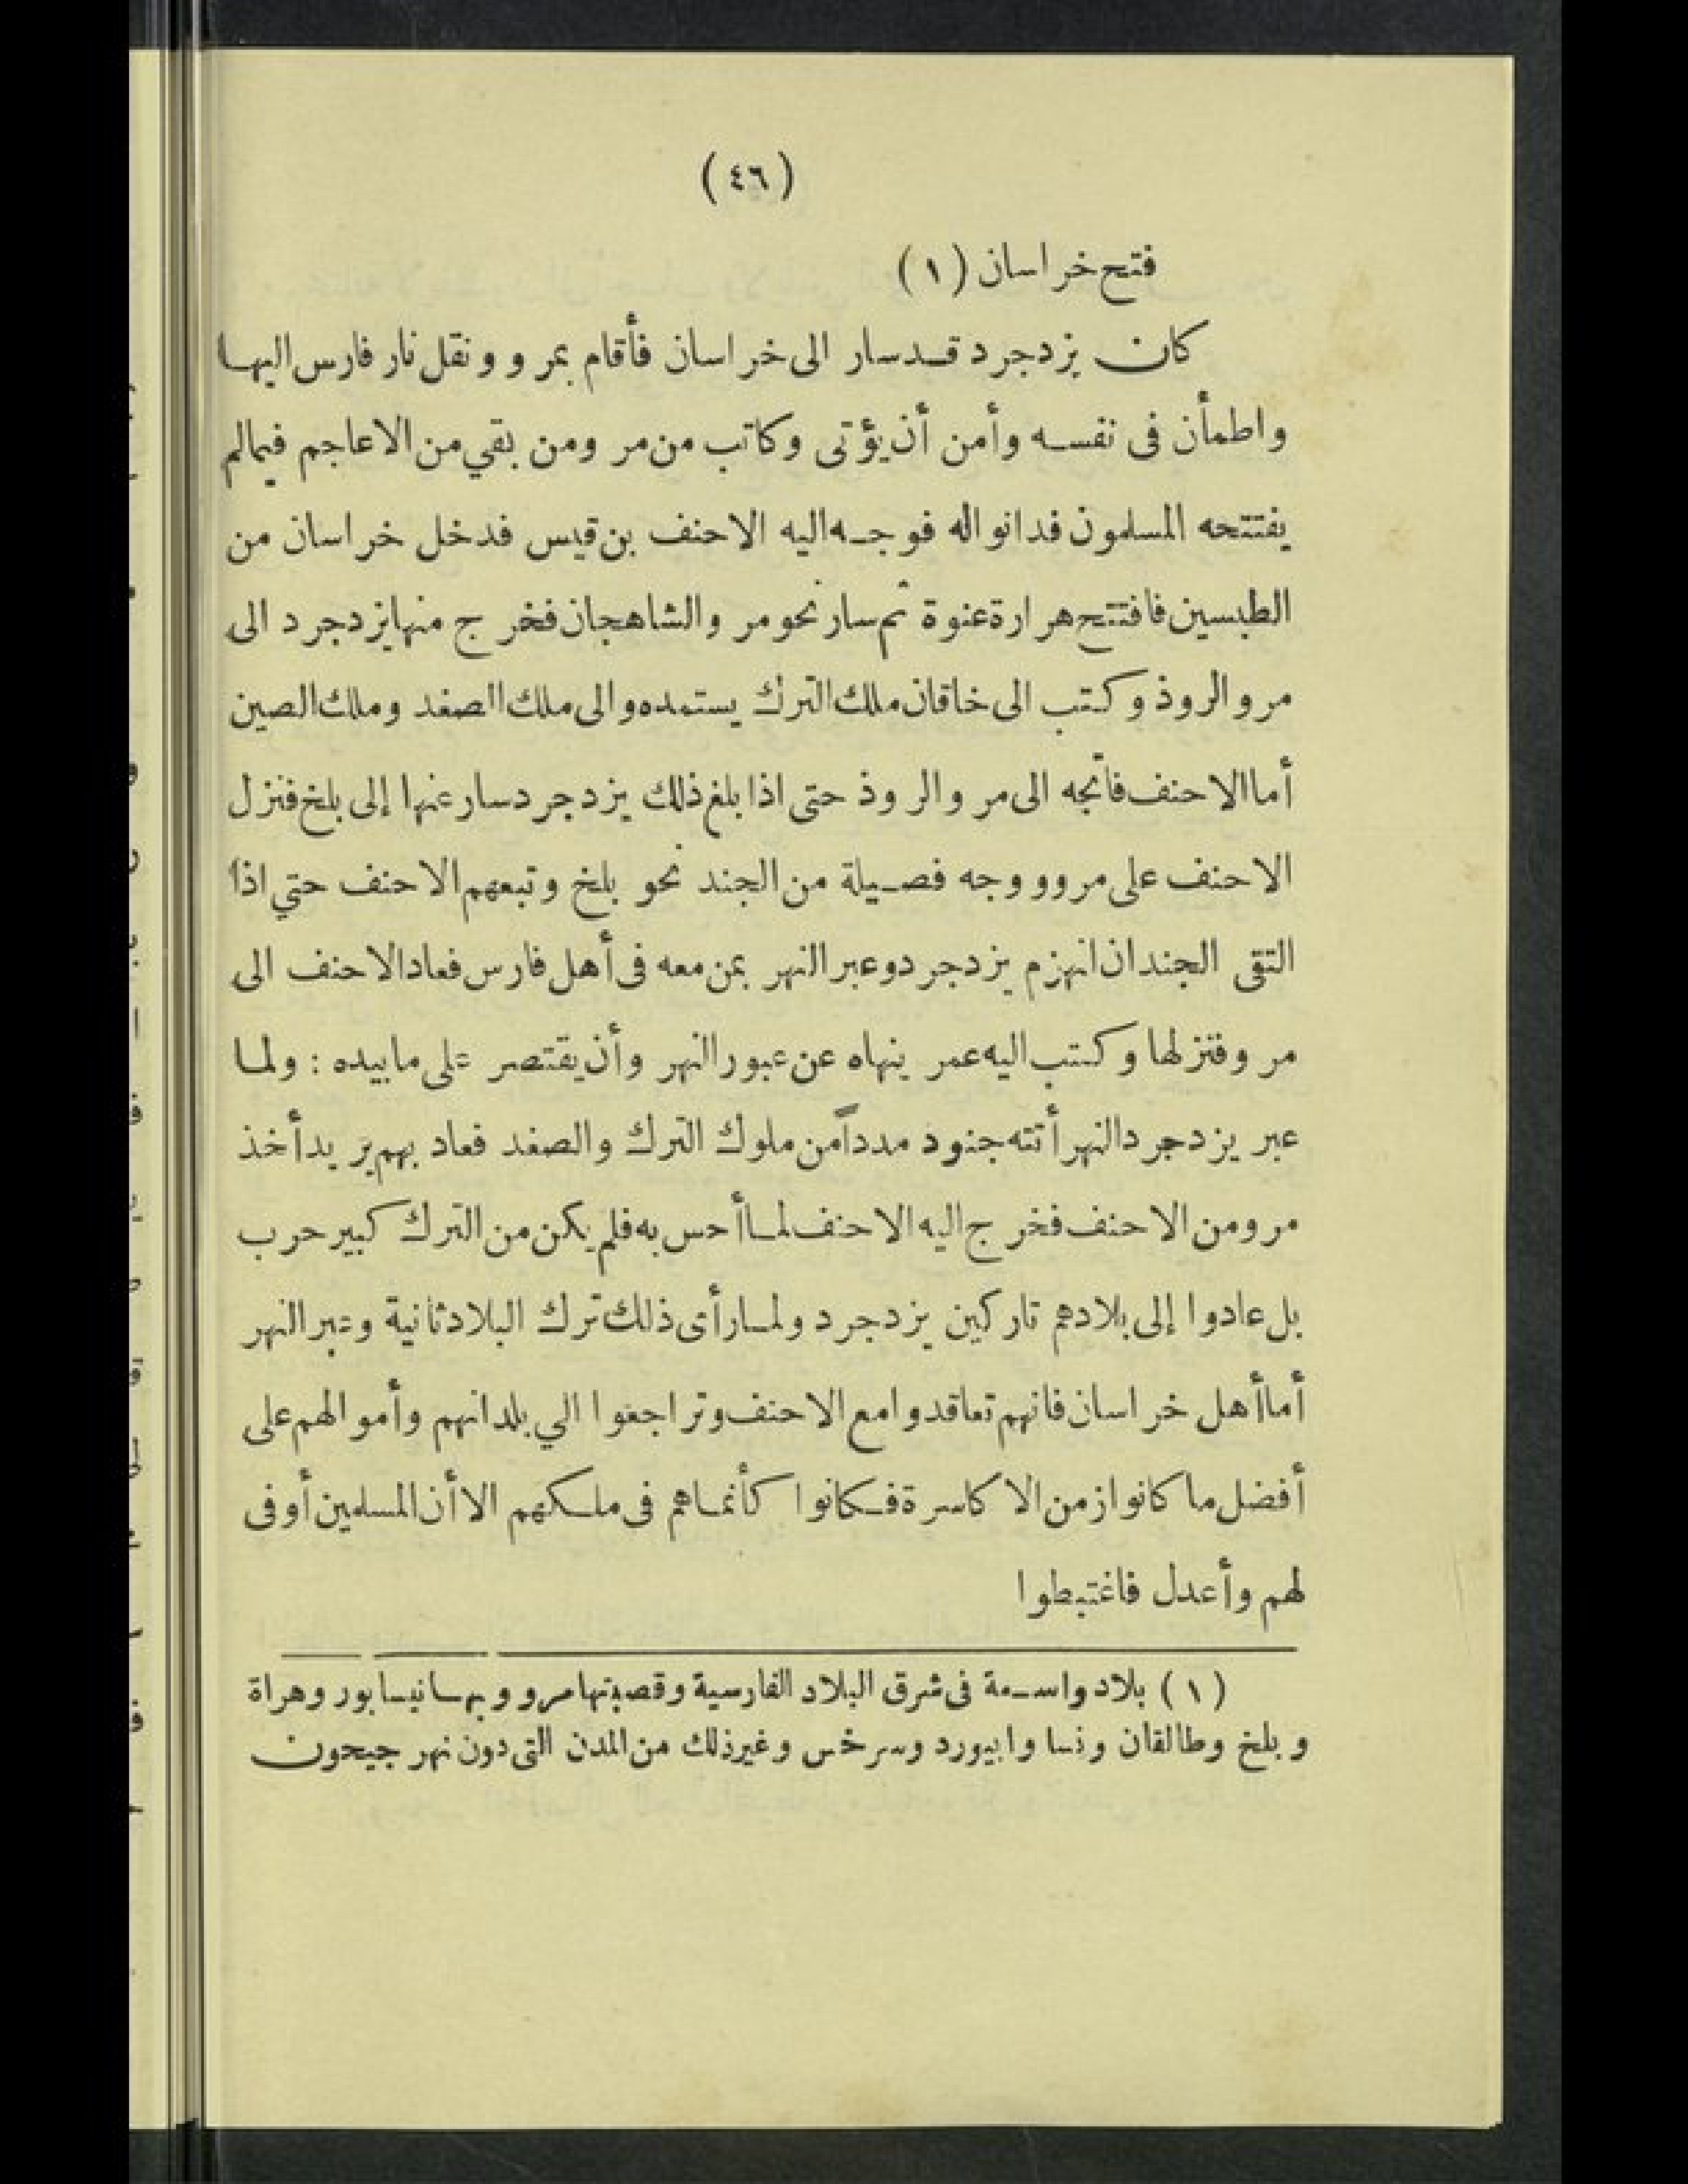 (٤٦)
فتح خراسان (١)
كان يزدجرد قد سار الى خراسان فأقام بمرو ونقل نار فارس اليها
واطمأن فى نفسه وأمن أن يؤتى وكاتب من مرو ومن بقي من الاعاجم فيمالم
يفتتحه المسلمون فدانوا له فوجه اليه الاحنف بن قيس فدخل خراسان من
الطبسين فافتتح هراة عنوة ثم سار نحو مرو الشاهجان فخرج منها يزدجرد الى
مرو الروذ وكتب الى خاقان ملك الترك يستمده والى ملك الصغد وملك الصين
أما الاحنف فاتجه الى مرو الروذ حتى اذا بلغ ذلك يزدجرد سار عنها إلى بلخ فنزل
الاحنف على مرو ووجه فصيلة من الجند نحو بلخ وتبعهم الاحنف حتي اذا
التقى الجندان انهزم يزدجرد وعبر النهر بمن معه فى أهل فارس فعاد الاحنف الى
مرو فنزلها وكتب اليه عمر ينهاه عن عبور النهر وأن يقتصر على ما بيده : ولما
عبر يزدجرد النهر أتته جنود مدداً من ملوك الترك والصغد فعاد بهم يريد أخذ
مرو من الاحنف فخرج اليه الاحنف لما أحس به فلم يكن من الترك كبير حرب
بل عادوا إلى بلادهم تاركين يزدجرد ولما رأى ذلك ترك البلاد ثانية وعبر النهر
أما أهل خراسان فانهم تعاقدوا مع الاحنف وتراجعوا الي بلدانهم وأموالهم على
أفضل ما كانوا زمن الاكاسرة فكانوا كأنما هم فى ملكهم الا أن المسلمين أوفى
لهم وأعدل فاغتبطوا
(١) بلاد واسعة فى شرق البلاد الفارسية وقصبتها مرو وبها نيسابور وهراة
وبلخ وطالقان ونسا وابيورد وسرخس وغير ذلك من المدن التى دون نهر جيحون